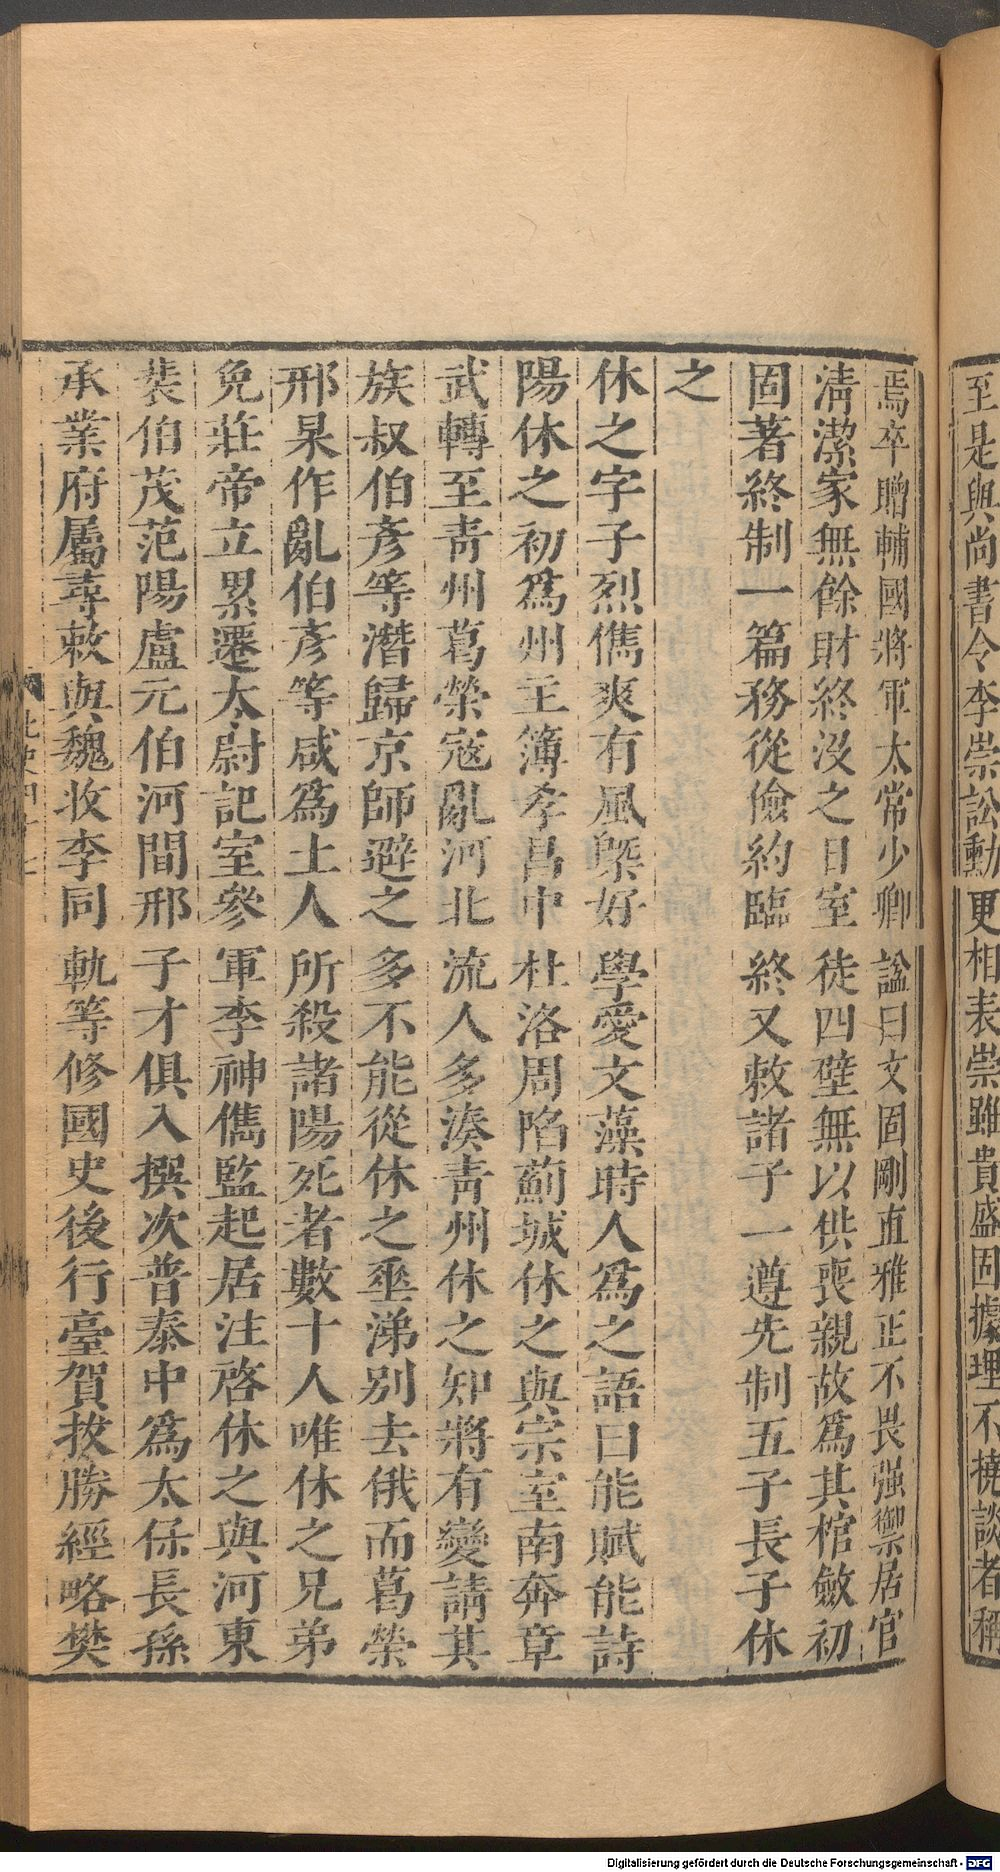 至是與尚書令李崇訟動更相表崇雖貴盛固據理不撓談者稱
焉卒贈輔國將軍太常少卿諡曰文固剛直雅正不畏强禦居官
清潔家無餘財終沒之日室徒四壁無以供喪親故爲其棺斂初
固著終制一篇務從儉約臨終又敕諸子一遵先制五子長子休
之
休之字子烈儁爽有風槩好學愛文藻時人爲之語曰能賦能詩
陽休之初爲州主簿孝昌中杜洛周陷薊城休之與宗室南奔章
武轉至靑州葛榮寇亂河北流人多湊靑州休之知將有變請其
族叔伯彥等潛歸京師避之多不能從休之垂涕別去俄而葛榮
邢杲作亂伯彥等咸爲土人所殺諸陽死者數十人唯休之兄弟
免莊帝立累遷太尉記室參軍李神儁監起居注啓休之與河東
裴伯茂范陽盧元伯河間邢子才俱入撰次普泰中爲太保長孫
承業府屬尋敕與魏收李同軌等修國史後行臺賀拔勝經略樊
北史四十七
Digitalisierung gefördert durch die Deutsche Forschungsgemeinschaft - DFG